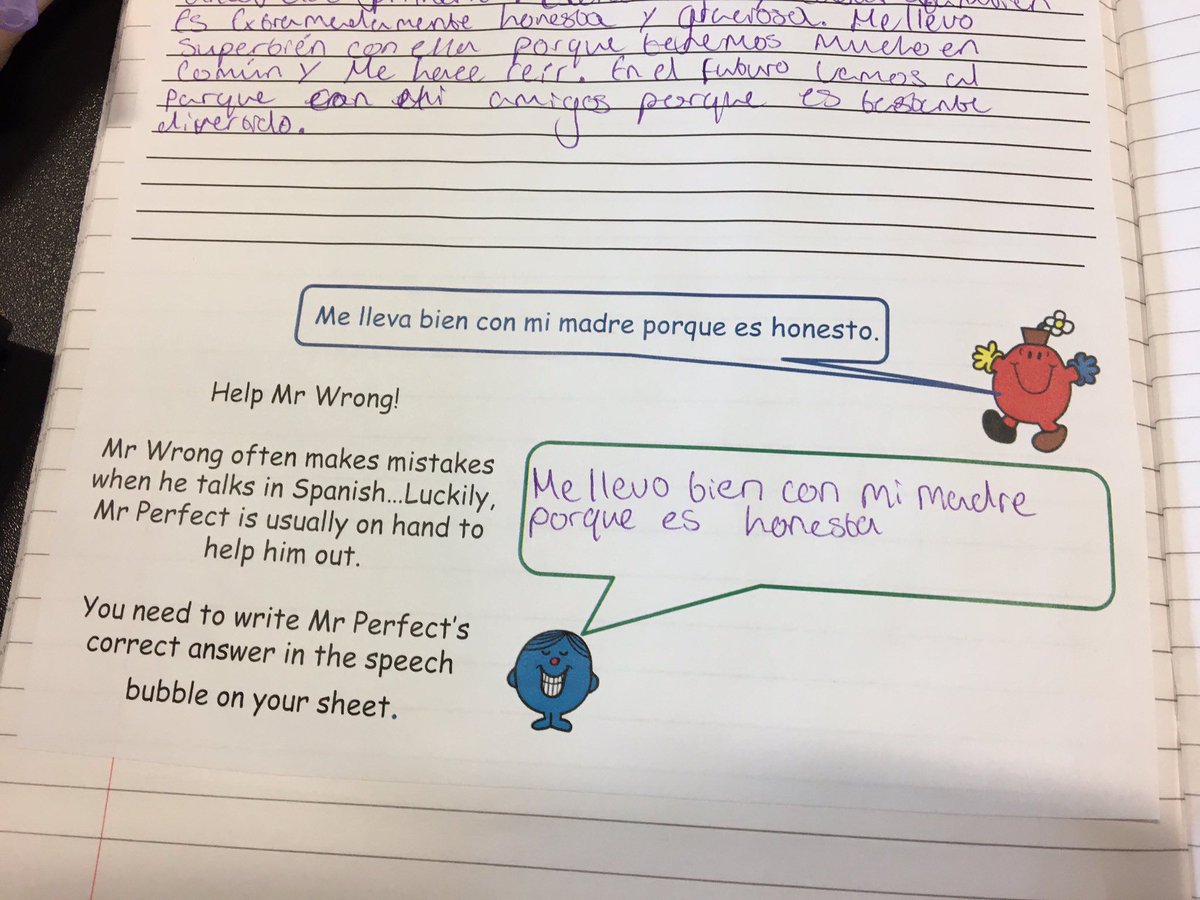 es extramadamente honesta y graciosa. Me llevo
superbién con ella porque tenemos mucho en
común y Me hace reír. En el futuro vamos al
parque con mi amigos porque es bastante
divertido.
Me lleva bien con mi madre porque es honesto.
Help Mr Wrong!
Mr Wrong often makes mistakes
when he talks in Spanish...Luckily,
Mr Perfect is usually on hand to
help him out.
You need to write Mr Perfect's
correct answer in the speech
bubble on your sheet.
Me llevo bien con mi madre
porque es honesta